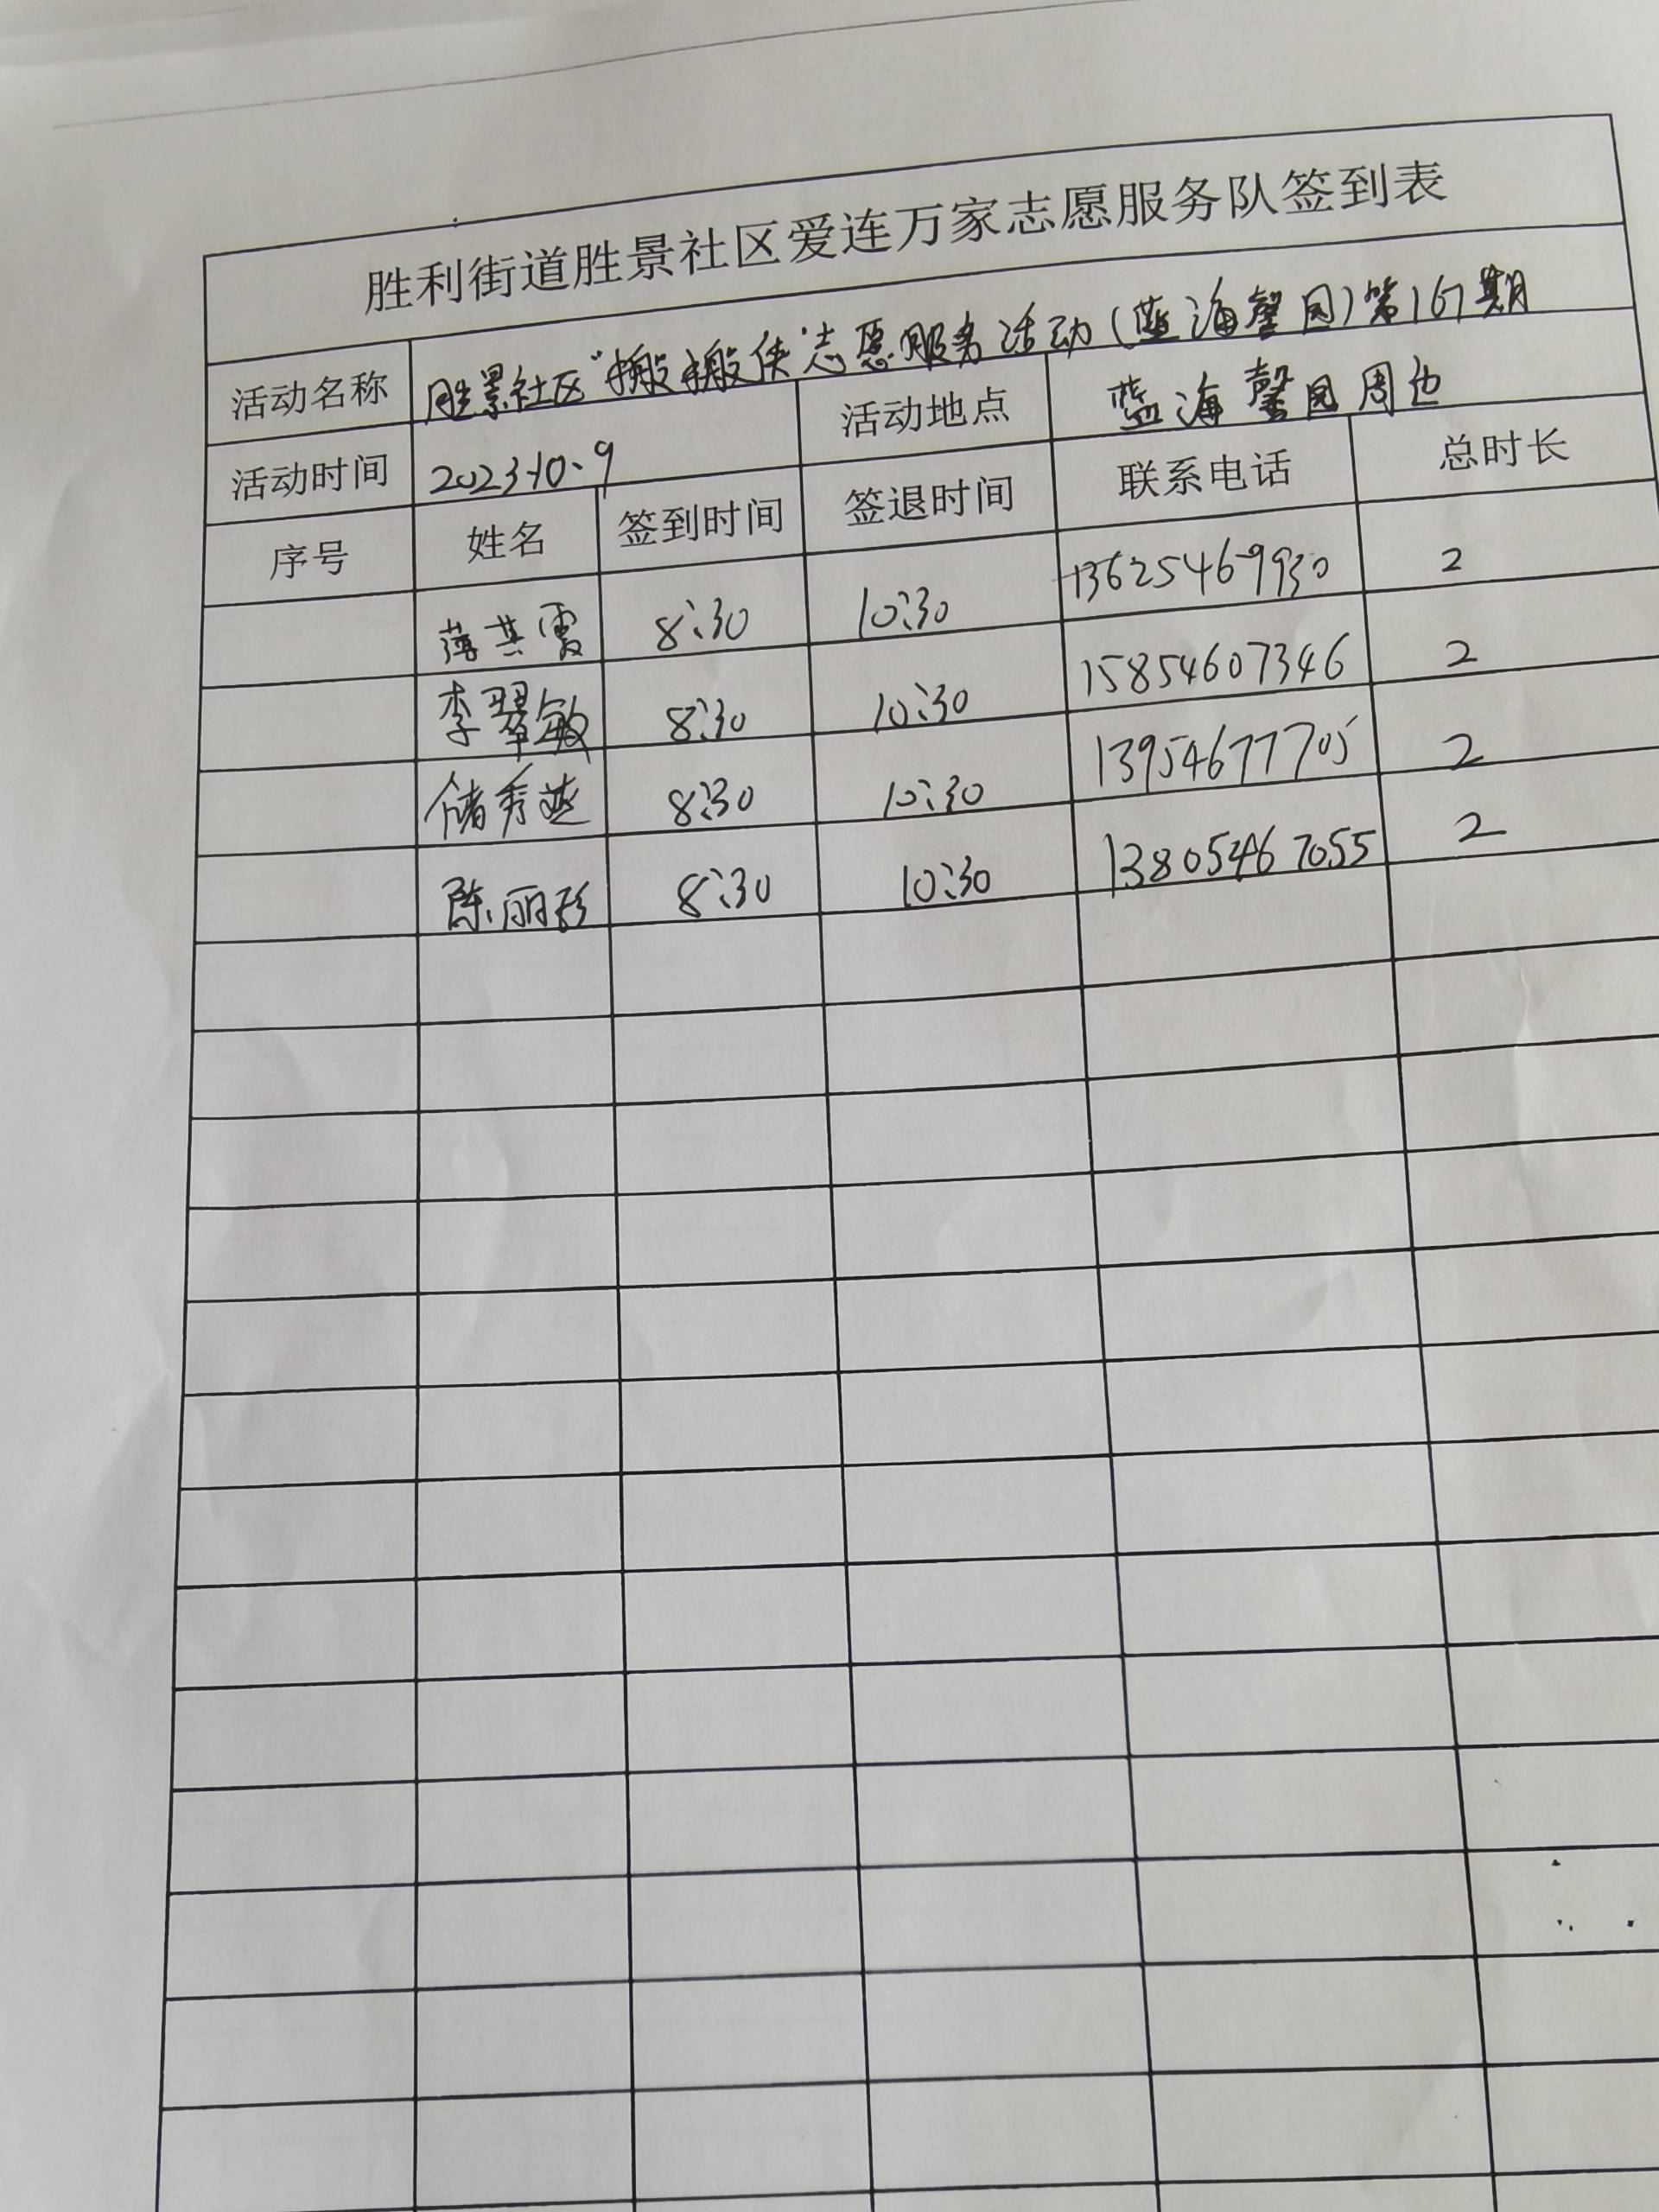 胜利街道胜景社区爱连万家志愿服务队签到表
活动名称 胜景社区“搬搬侠”志愿服务活动(蓝海馨园)第167期
活动时间 2023.10.9 活动地点 蓝海馨园周边
序号 姓名 签到时间 签退时间 联系电话 总时长
薄其霞 8:30 10:30 13625469930 2
李翠敏 8:30 10:30 15854607346 2
储秀燕 8:30 10:30 13954677705 2
陈丽珍 8:30 10:30 13805467055 2